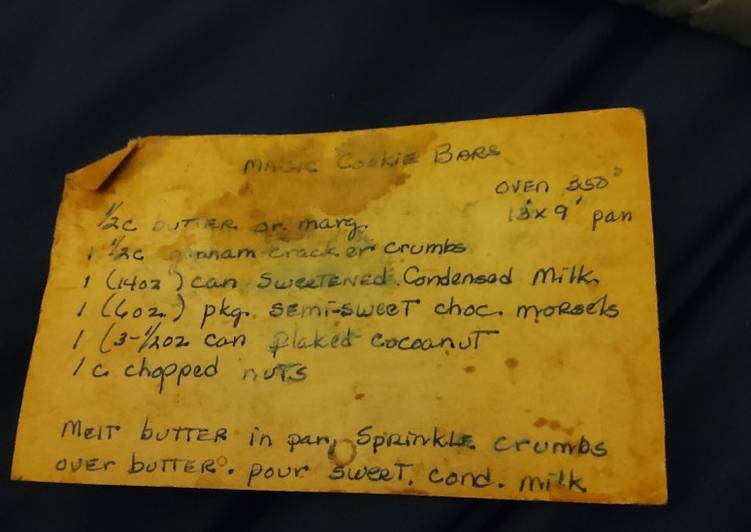 MAGIC COOKIE BARS
OVEN 350°
13"x 9" pan
1/2c BUTTER or marg.
1 1/2c graham cracker crumbs
1 (14oz) can SWEETENED Condensed Milk
1 (6oz.) pkg. SEMI-SWEET choc. morsels
1 (3-1/2oz can flaked cocoanut
1 c chopped nuts
MELT BUTTER in pan, SPRINKLE crumbs
over BUTTER. pour SWEET. cond. milk